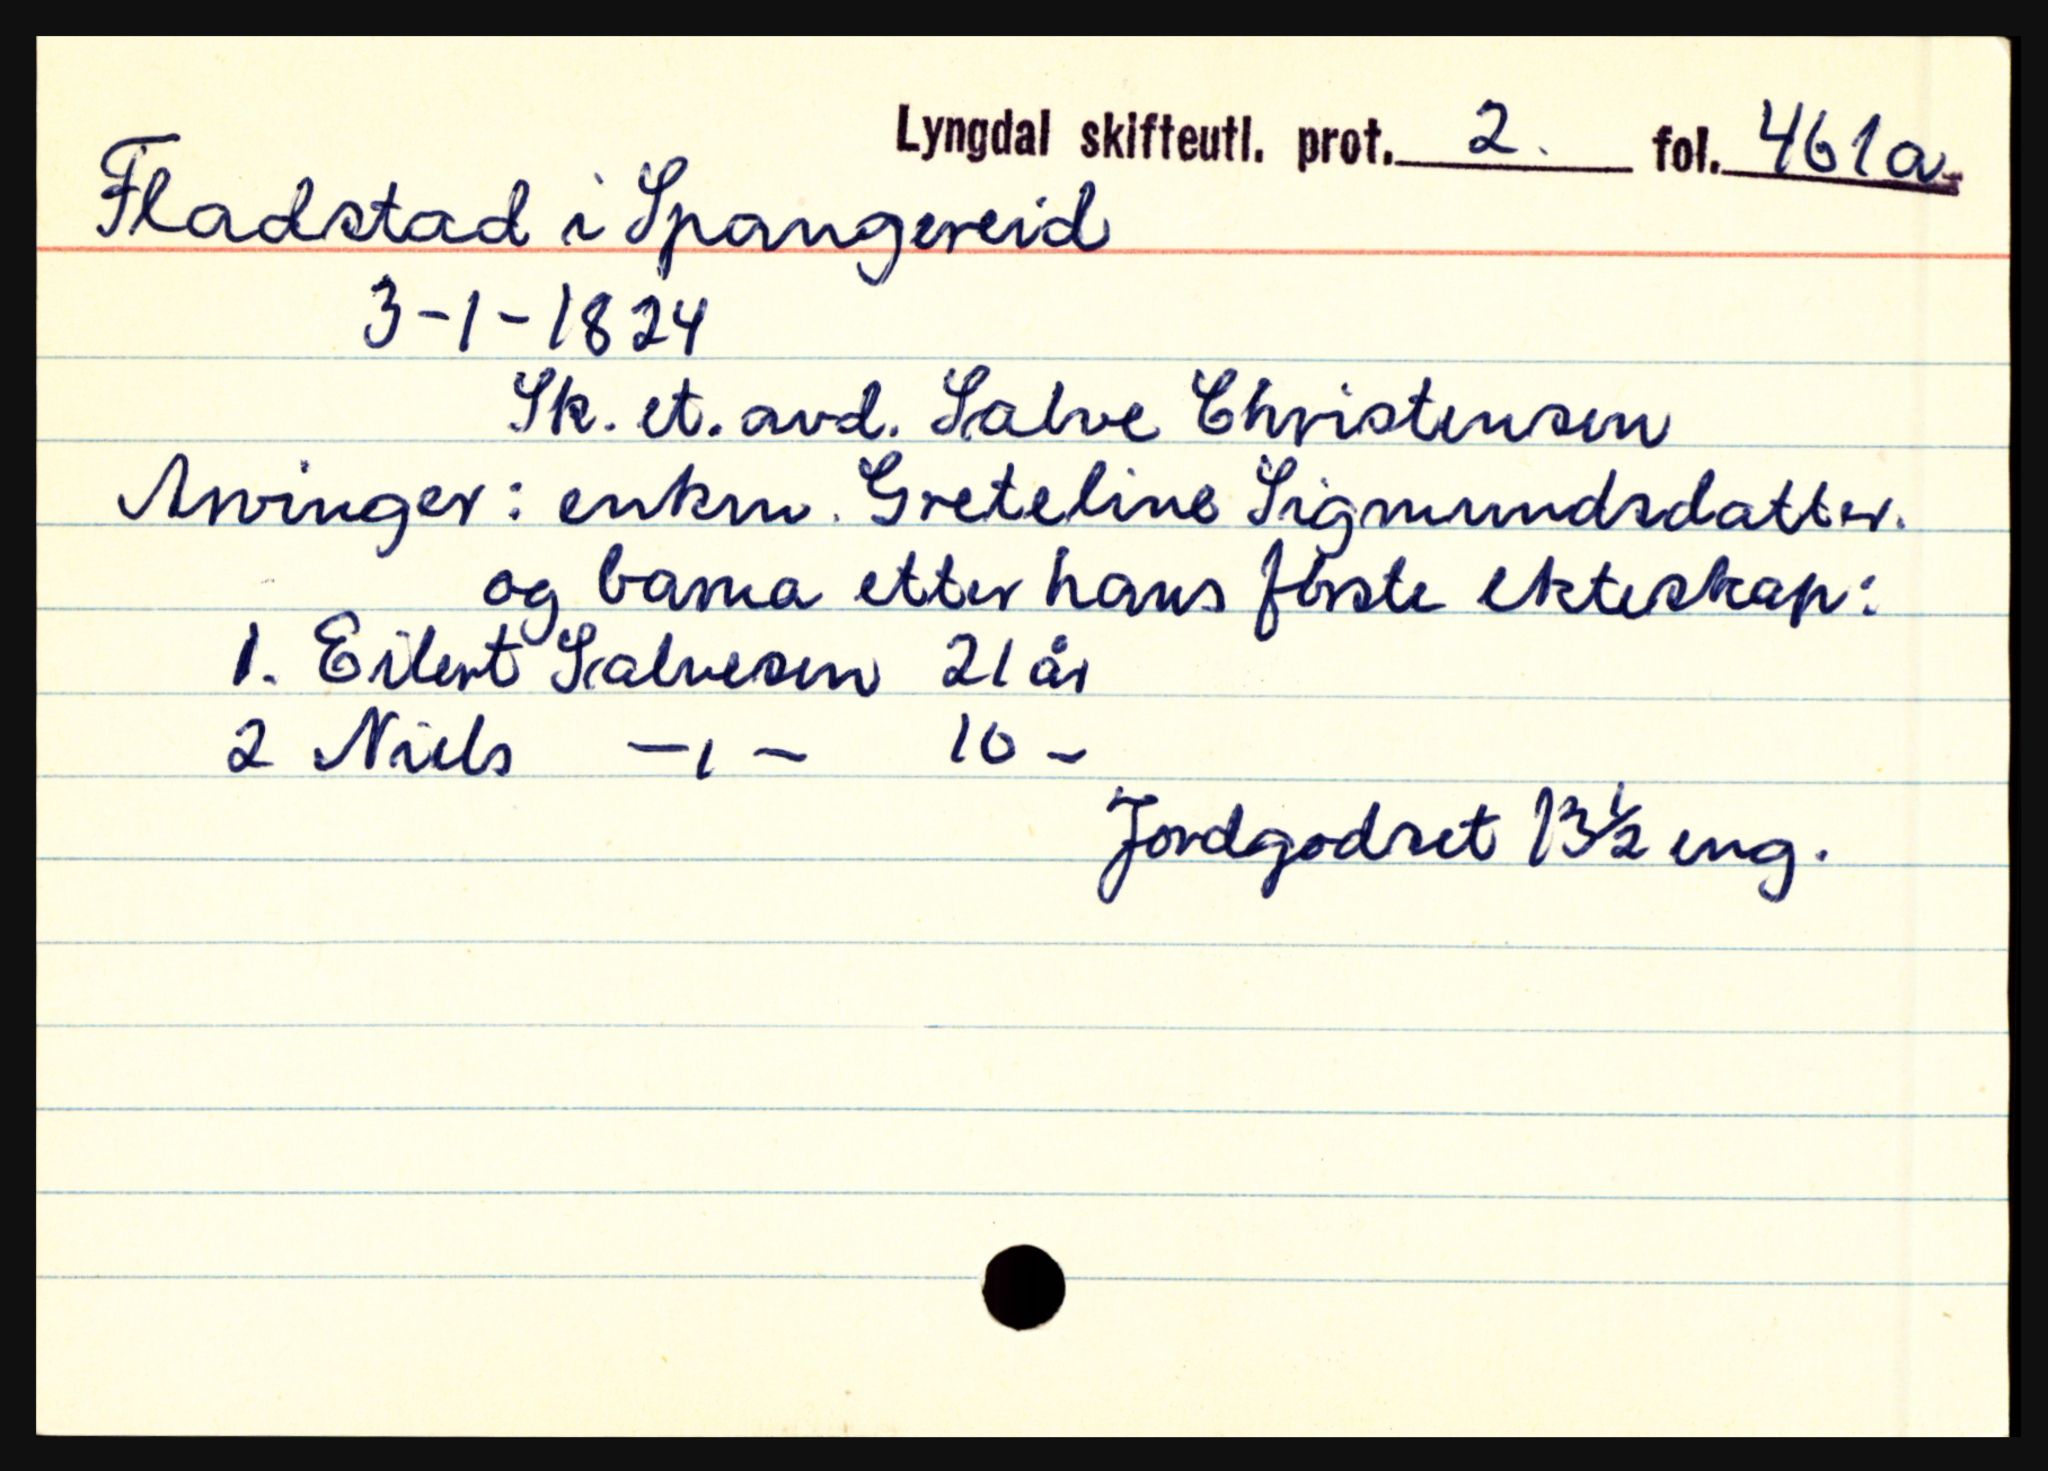 Lyngdal skifteutl. prot. 2. fol. 461a
Fladstad i Spangereid
3-1-1824
Sk. et. avd. Salve Christensen
Arvinger: enken. Greteline Sigmundsdatter.
og barna etter hans første ekteskap:
1. Eilert Salvesen 21 år
2 Niels —ı— 10 –
Jordgodset 13½ eng.